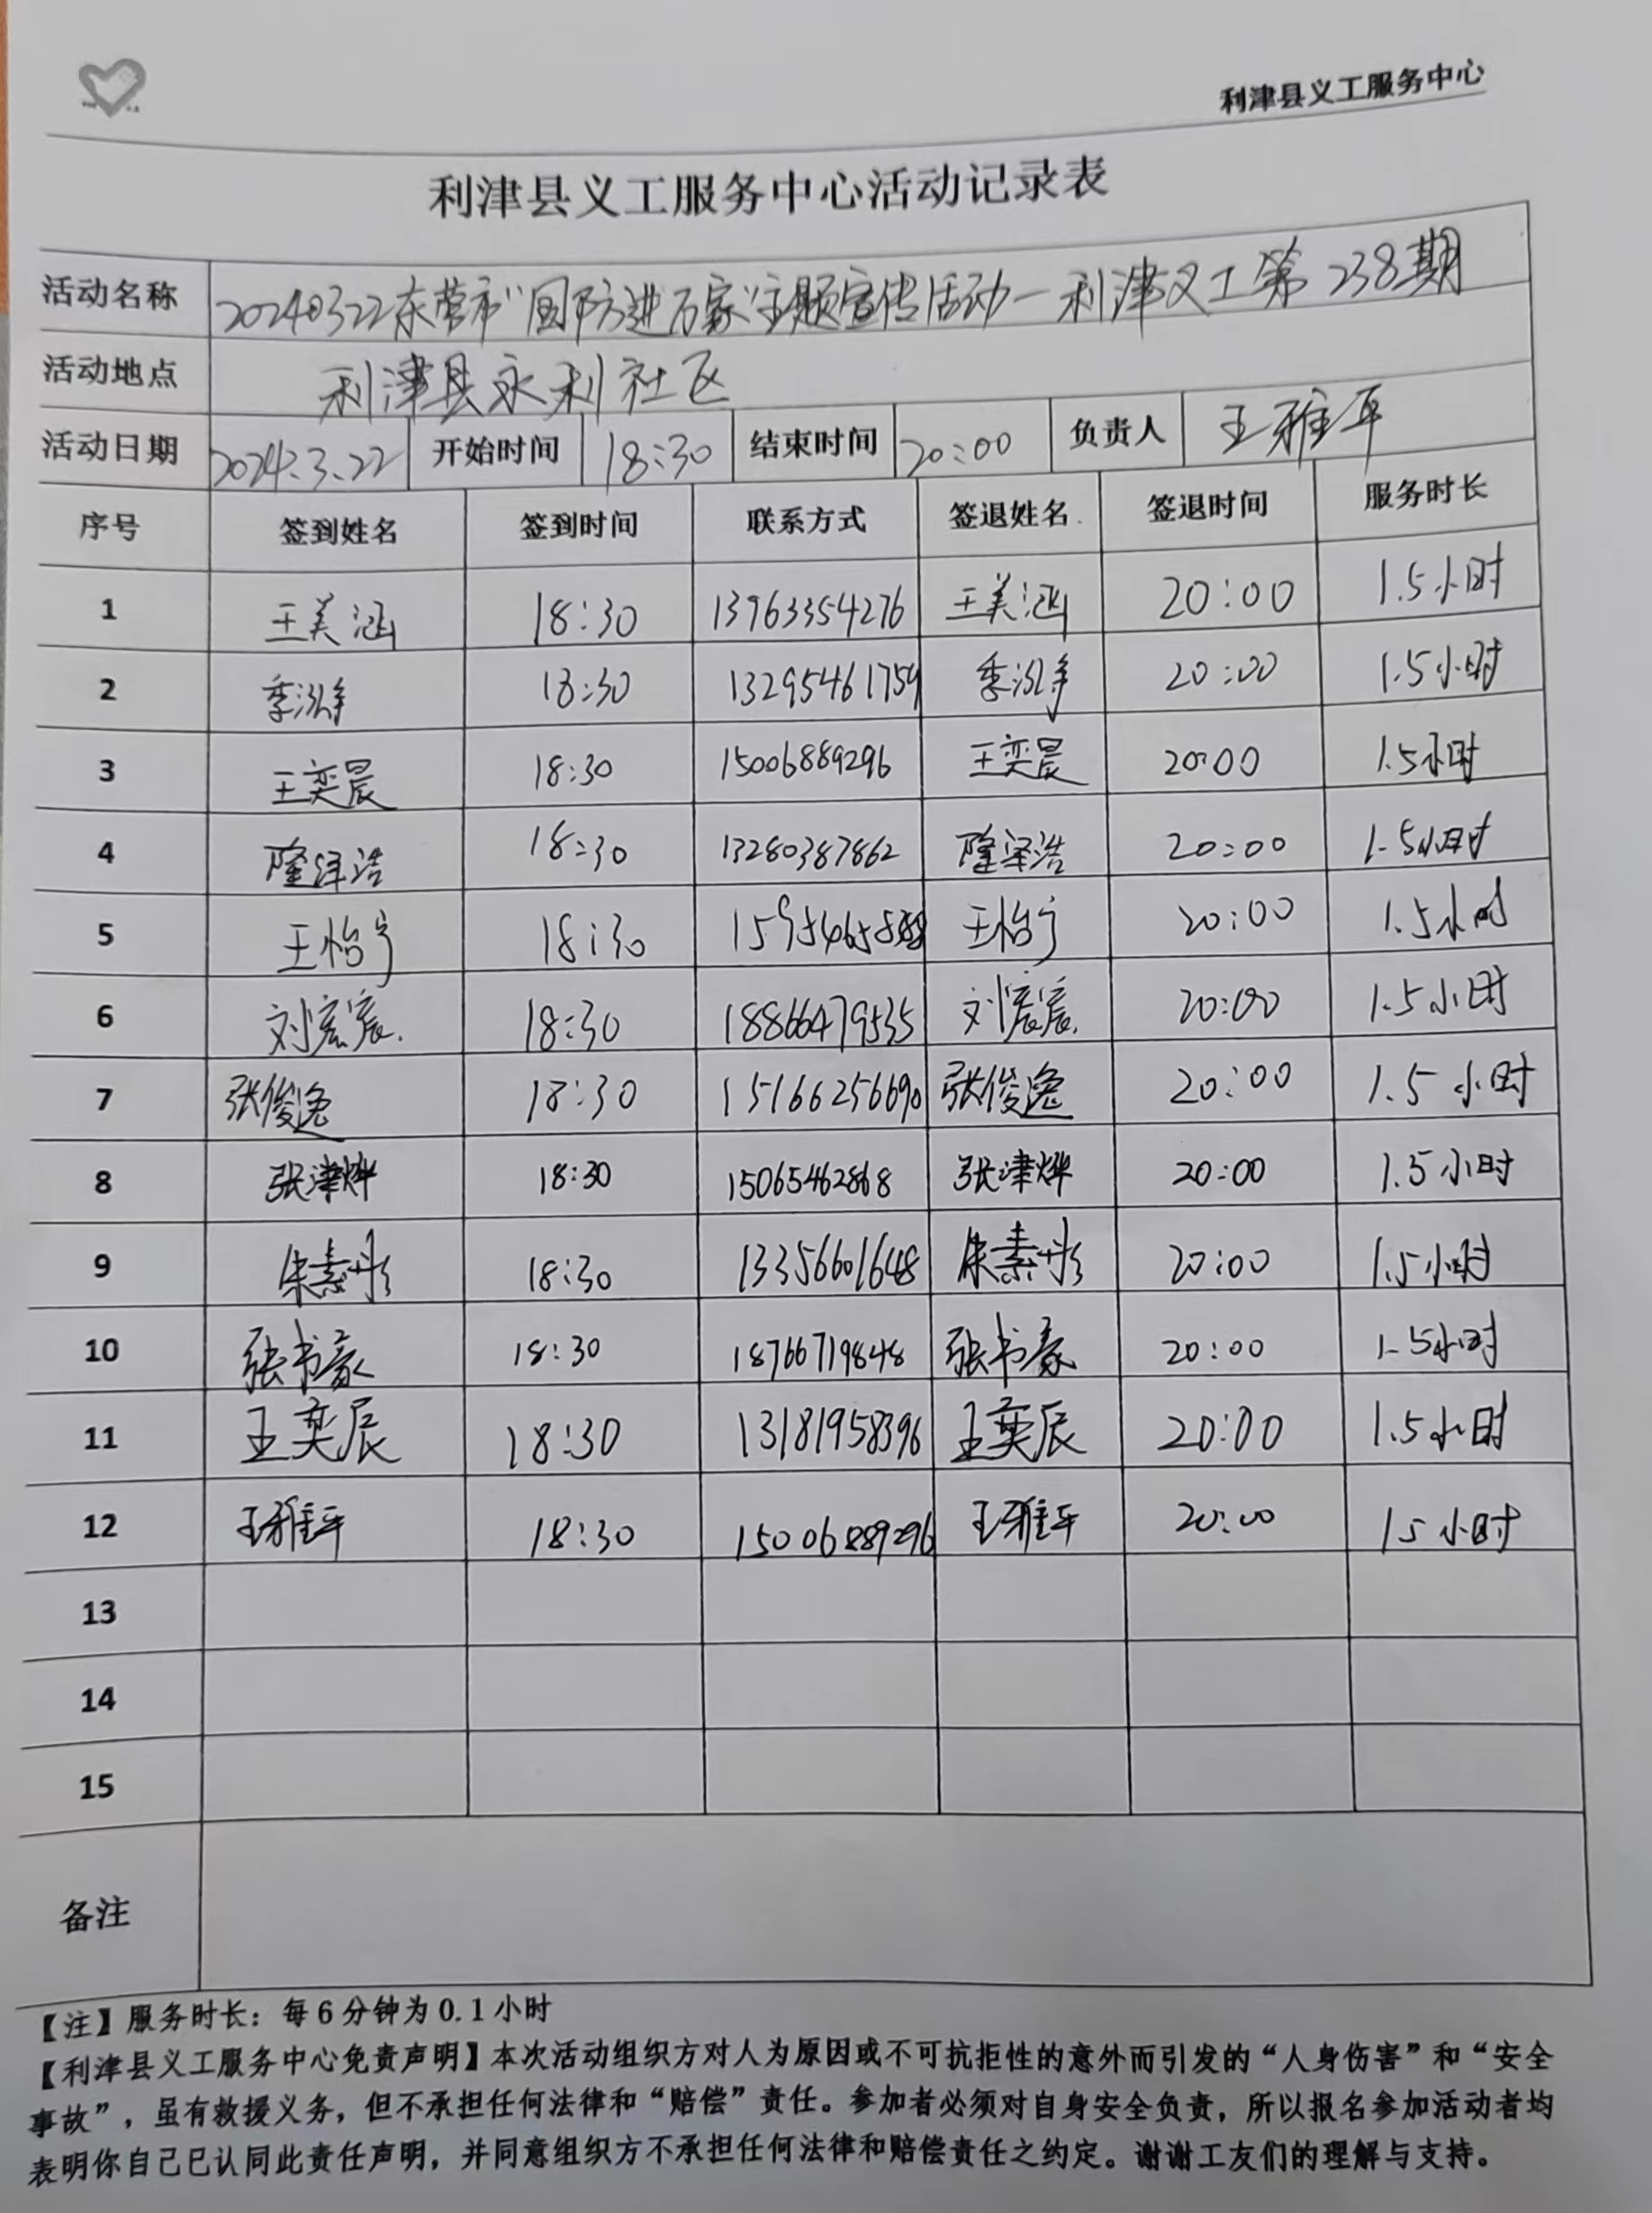 利津县义工服务中心
利津县义工服务中心活动记录表
活动名称 20240322东营市“国防进万家”主题宣传活动—利津义工第238期
活动地点 利津县永利社区
活动日期 2024.3.22 开始时间 18:30 结束时间 20:00 负责人 王雅平
序号 签到姓名 签到时间 联系方式 签退姓名 签退时间 服务时长
1 王美涵 18:30 13963354276 王美涵 20:00 1.5小时
2 季泓铮 18:30 13295461759 季泓铮 20:00 1.5小时
3 王奕晨 18:30 15006889296 王奕晨 20:00 1.5小时
4 隆泽浩 18:30 13280387862 隆泽浩 20:00 1.5小时
5 王怡宁 18:30 王怡宁 20:00 1.5小时
6 刘宸宸 18:30 18866479535 刘宸宸 20:00 1.5小时
7 张俊逸 18:30 15166256690 张俊逸 20:00 1.5小时
8 张津烨 18:30 15065462868 张津烨 20:00 1.5小时
9 宋素彤 18:30 13356601648 宋素彤 20:00 1.5小时
10 张书豪 18:30 18766719848 张书豪 20:00 1.5小时
11 王奕辰 18:30 13181958396 王奕辰 20:00 1.5小时
12 王雅平 18:30 15006889296 王雅平 20:00 1.5小时
13
14
15
备注
【注】服务时长：每6分钟为0.1小时
【利津县义工服务中心免责声明】本次活动组织方对人为原因或不可抗拒性的意外而引发的“人身伤害”和“安全
事故”，虽有救援义务，但不承担任何法律和“赔偿”责任。参加者必须对自身安全负责，所以报名参加活动者均
表明你自己已认同此责任声明，并同意组织方不承担任何法律和赔偿责任之约定。谢谢工友们的理解与支持。